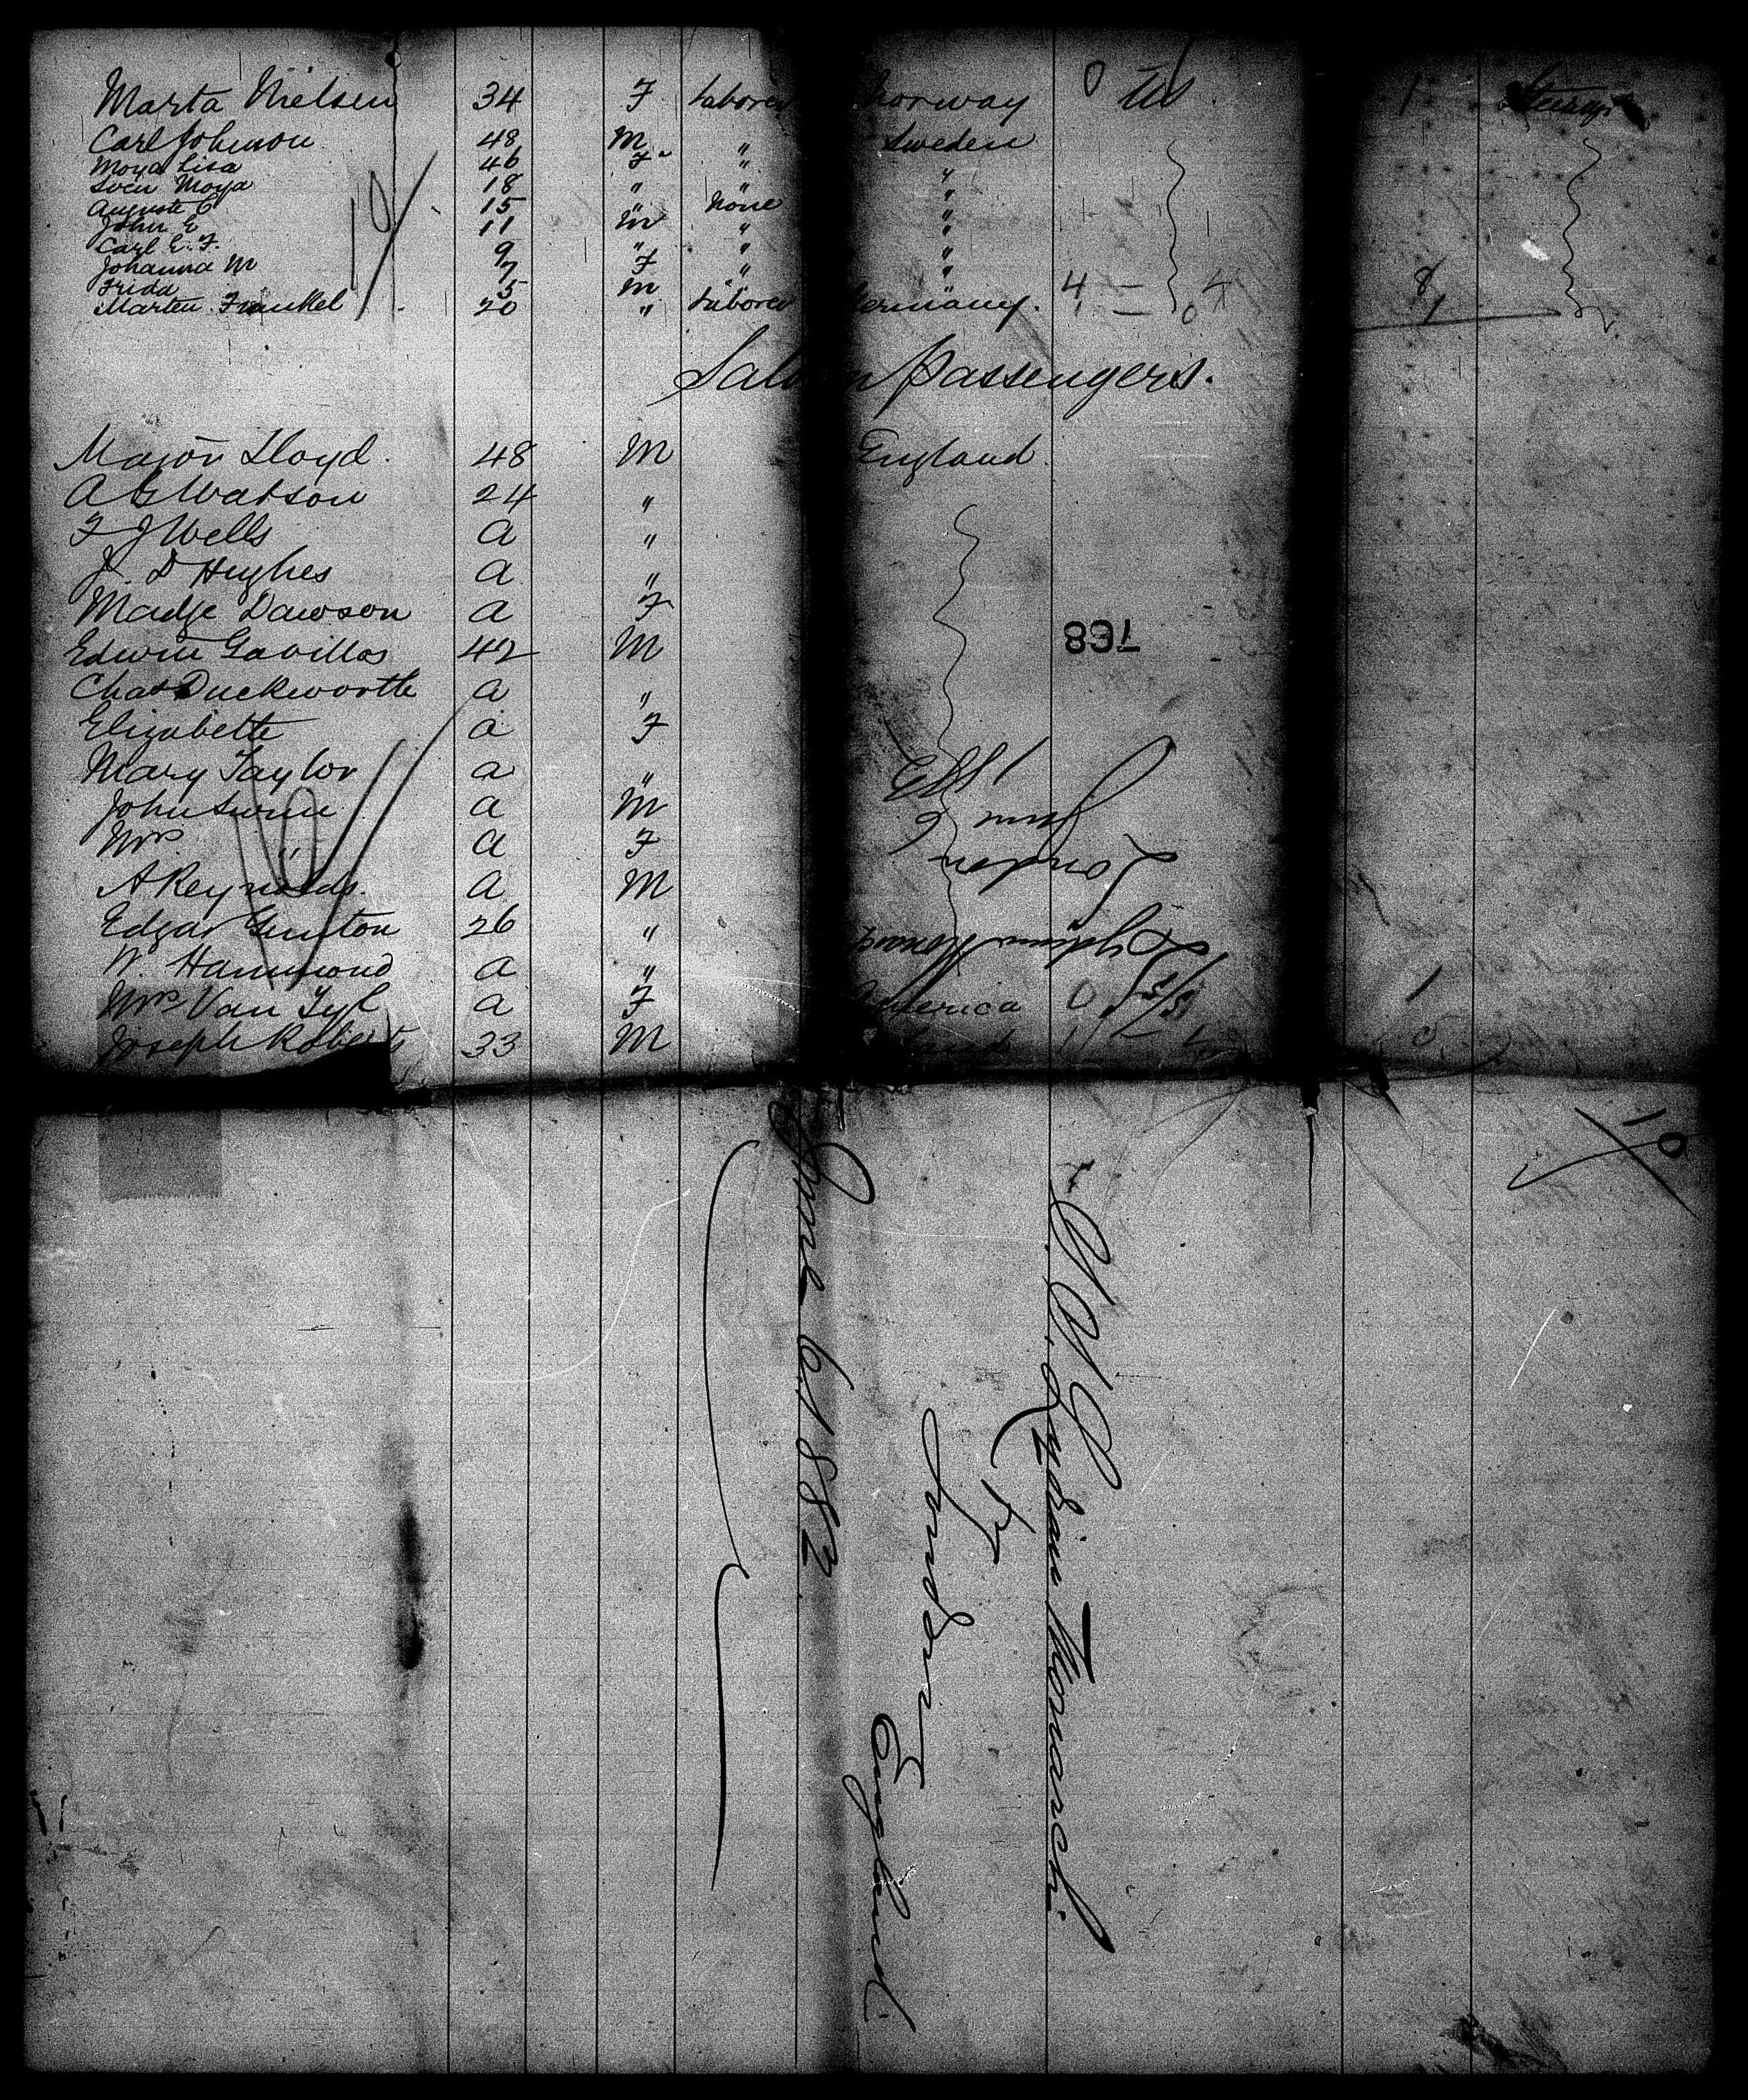 Marta Nielsen 34 F Laborer Norway 0 US 1
Carl Johnson 48 M " Sweden
Moya Lisa 46 F " "
Sven Moya 18 " " "
Auguste C 15 " None "
John E 11 M " "
Carl E. F. 9 " " "
Johanna M 7 F " "
Frida 5 M 4 — 8
Marten Frankel 20 " Laborer Germany.
Saloon Passengers.
Major Lloyd. 48 M England.
A G Watson 24 "
F J Wells a "
J. D Hughes a "
Madge Dawson a F
Edwin Gavillos 42 M
831
Chas Duckworth a "
Elizabeth a F
Mary Taylor a "
John Swin a M
Mrs " a F
A Reynolds. a M
Edgar Gunton 26 "
W. Hammond a "
Mrs Van Tyl a F America 0 1
Joseph Roberts 33 M
10
Lydian Monarch
London
June 6
10
Lydian Monarch.
London England.
June 6 1882